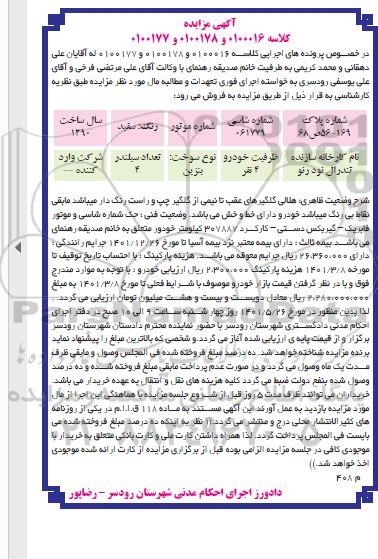 آگهی مزایده
کلاسه ۰۱۰۰۰۱۶ و ۰۱۰۰۱۷۸ و ۰۱۰۰۱۷۷
در خصوص پرونده های اجرایی کلاسه ۰۱۰۰۰۱۶ و ۰۱۰۰۱۷۸ و ۰۱۰۰۱۷۷ له آقایان علی
دهقانی و محمد کریمی به طرفیت خانم صدیقه رهنمای با وکالت آقای علی مرتضی فرخی و آقای
علی یوسفی رودسری به خواسته اجرای فوری تعهدات و مطالبه مال مورد نظر مزایده طبق نظریه
کارشناسی به قرار ذیل از طریق مزایده به فروش می رود:
شماره پلاک ۱۶۹-۵۶ص۶۸
شماره شاسی ۰۶۱۷۷۹
شماره موتور
رنگ: سفید
سال ساخت ۱۳۹۰
نام کارخانه سازنده تندرال نود رنو
ظرفیت خودرو ۴ نفر
نوع سوخت: بنزین
تعداد سیلندر ۴
شرکت وارد کننده ---
شرح وضعیت ظاهری: هلالی گلگیرهای عقب تا نیمی از گلگیر چپ و راست رنگ دار میباشد مابقی
نقاط بی رنگ میباشد خودرو دارای خط و خش می باشد. وضعیت فنی : حک شماره شاسی و موتور
فابریک – گیربکس دستی – کارکرد ۳۰۷۸۸۷ کیلومتر خودور متعلق به خانم صدیقه رهنمای
می باشد بیمه ثالث : دارای بیمه معتبر نزد بیمه آسیا تا مورخ ۱۴۰۱/۱۲/۲۶ جرایم رانندگی :
دارای ۲۶،۳۶۰،۰۰۰ ریال جرایم معوقه می باشد. هزینه پارکینگ : با احتساب تاریخ توقیف تا
مورخه ۱۴۰۱/۳/۸ هزینه پارکینگ ۲،۳۰۰،۰۰۰ ریال ارزیابی خودرو : با توجه به موارد مندرج
فوق و با در نظر گرفتن قیمت بازار خودرو موصوف با شرایط فعلی تا مورخ ۱۴۰۱/۳/۸ به مبلغ
۲،۲۸۰،۰۰۰،۰۰۰ ریال معادل دویست و بیست و هشت میلیون تومان ارزیابی می گردد. .
لذا بدین منظور در مورخ ۱۴۰۱/۵/۲۶ روز چهار شنبه ساعت ۹ الی ۱۰ صبح در دفتر اجرای
احکام مدنی دادگستری شهرستان رودسر با حضور نماینده محترم دادستان شهرستان رودسر
برگزار و از قیمت پایه ی ارزیابی شده آغاز می گردد و شخصی که بالاترین مبلغ را پیشنهاد نماید
برنده مزایده شناخته خواهد شد. ده درصد مبلغ فروخته شده فی المجلس وصول و مابقی ظرف
مدت یک ماه وصول می گردد و در صورت عدم پرداخت مابقی مبلغ فروخته شده و ده درصد
وصول شده بنفع دولت ضبط می گردد کلیه هزینه های نقل و انتقال به عهده خریدار می باشد
خریداران می توانند ظرف مدت ۵ روز قبل از شروع جلسه مزایده با هماهنگی این اجرا از مال
مورد مزایده بازدید به عمل آورند این آگهی مستند به ماده ۱۱۸ ق.ا.ا.م در یکی از روزنامه
های کثیر الانتشار محلی درج و منتشر می گردد.(( نظر به اینکه ده درصد مبلغ فروخته شده می
بایست فی المجلس پرداخت گردد. لذا همراه داشتن کارت ملی و کارت بانکی متعلق به خریدار با
موجودی کافی در جلسه مزایده الزامی بوده قبل از برگزاری مزایده از کارت ارائه شده موجودی
اخذ خواهد شد.))
م ۴۰۸
دادورز اجرای احکام مدنی شهرستان رودسر – رضاپور